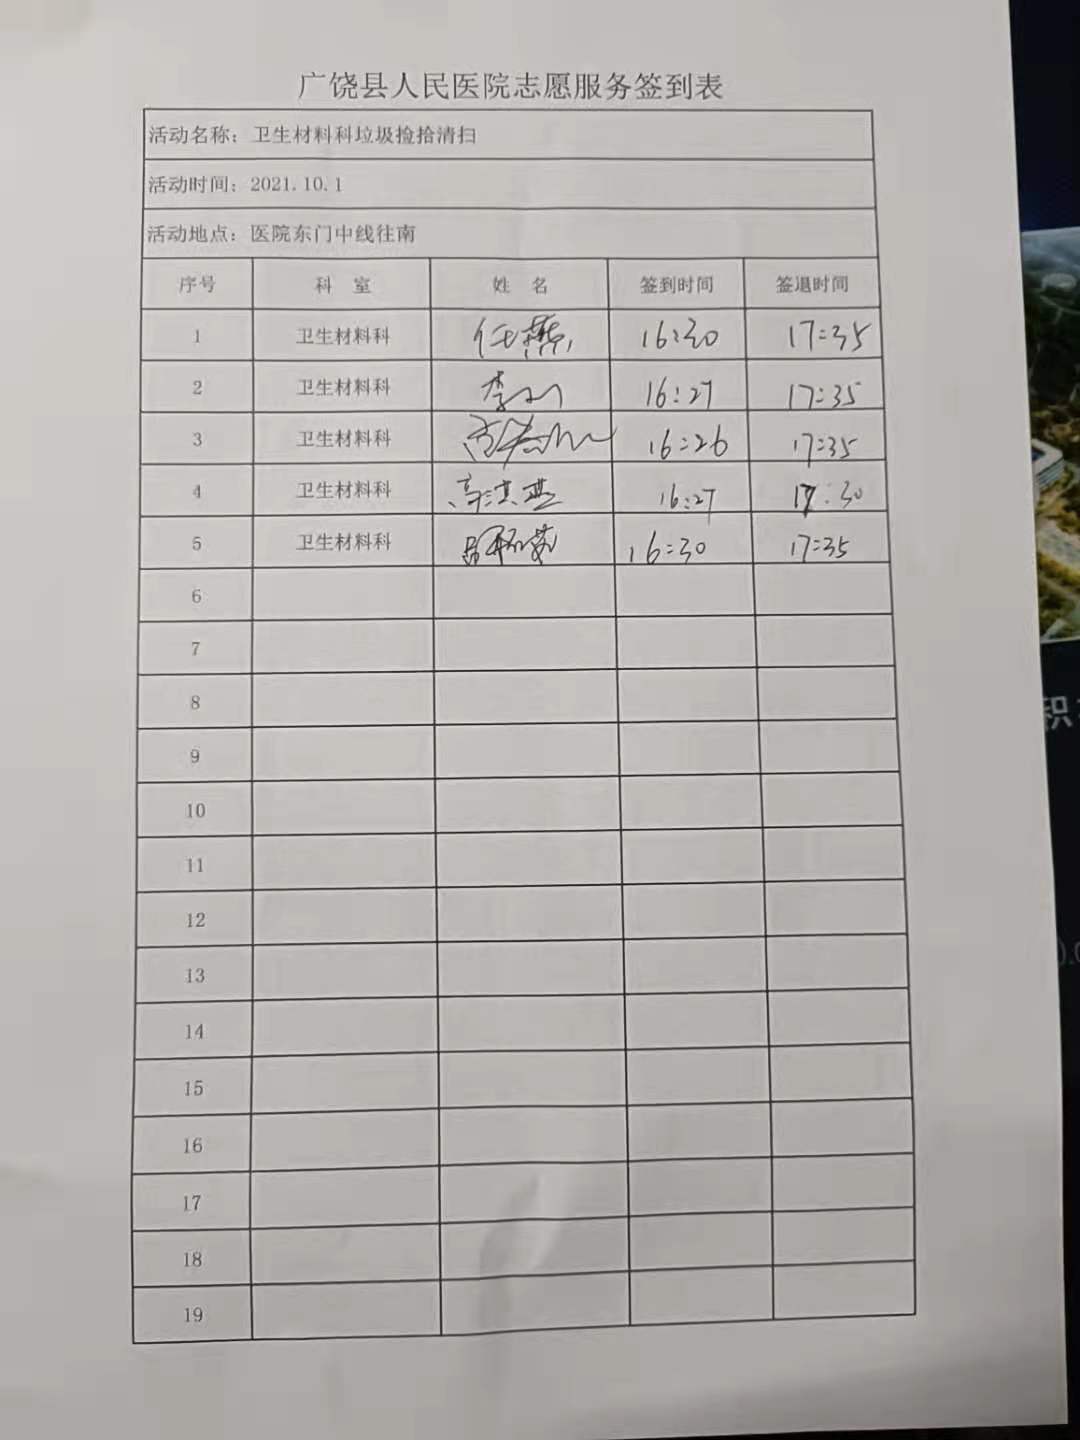 广饶县人民医院志愿服务签到表
活动名称：卫生材料科垃圾捡拾清扫
活动时间：2021.10.1
活动地点：医院东门中线往南
序号 科 室 姓 名 签到时间 签退时间
1 卫生材料科 任燕 16:30 17:35
2 卫生材料科 李 16:27 17:35
3 卫生材料科 16:26 17:35
4 卫生材料科 16:27 17:30
5 卫生材料科 16:30 17:35
6
7
8
9
10
11
12
13
14
15
16
17
18
19
积